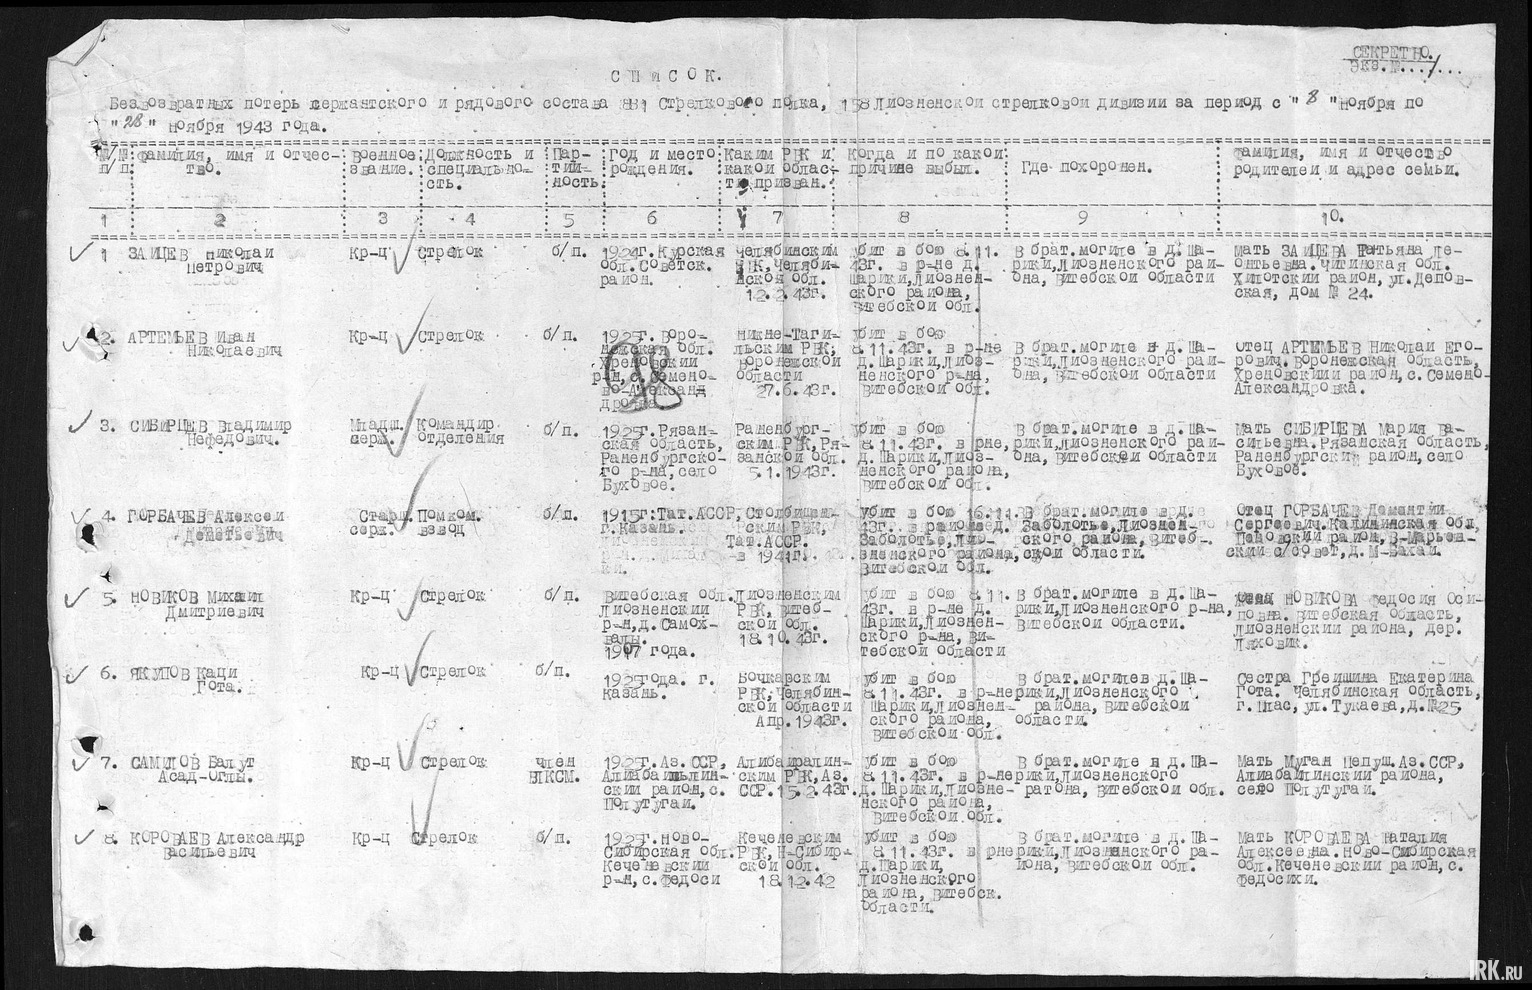 СЕКРЕТНО.
Экз.№...1...
СПИСОК.
Безвозвратных потерь сержантского и рядового состава 881 Стрелкового полка, 158 Лиозненской стрелковой дивизии за период с "8" ноября по
"28" ноября 1943 года.
№/№
п/п
фамилия, имя и отчес-
тво.
Военное
звание.
Должность и
специально-
сть.
Пар-
тий-
ность.
Год и место
рождения.
Каким РВК и
какой облас-
ти призван.
Когда и по какой
причине выбыл.
Где похоронен.
фамилия, имя и отчество
родителей и адрес семьи.
1
2
3
4
5
6
7
8
9
10.
1
ЗАЙЦЕВ Николай
Петрович
Кр-ц
Стрелок
б/п.
1924г. Курская
обл. Советск.
район.
Челябинским
РВК, Челяби-
нской обл.
12.2.43г.
убит в бою 8.11.
43г. в р-не д.
Шарики, Лиознен-
ского района,
Витебской обл.
В брат.могиле в д.Ша-
рики, Лиозненского рай-
она, Витебской области
Мать ЗАЙЦЕВА Татьяна Ле-
онтьевна. Читинская обл.
Хилотский район, ул.Деповс-
кая, дом № 24.
2.
АРТЕМЬЕВ Иван
Николаевич
Кр-ц
Стрелок
б/п.
1925г. Воро-
нежская обл.
Хреновский
р-н, с.Семено-
во-Александ
дровка
Нижне-Таги-
льским РВК,
Воронежской
области
27.6.43г.
убит в бою
8.11.43г. в р-не
д.Шарики, Лиоз-
ненского р-на,
Витебской обл.
В брат.могиле в д.Ша-
рики, Лиозненского рай-
она, Витебской области
Отец АРТЕМЬЕВ Николай Его-
рович. Воронежская область,
Хреновский район, с.Семено-
Александровка.
3.
СИБИРЦЕВ Владимир
Нефедович.
Младш.
серж.
Командир
отделения
б/п.
1925г. Рязан-
ская область,
Раненбургско-
го р-на, село
Буховое.
Раненбург-
ским РВК, Ря-
занской обл.
5.1.1943г.
убит в бою
8.11.43г. в рне,
д.Шарики, Лиоз-
ненского района,
Витебской обл.
В брат.могиле в д.Ша-
рики, Лиозненского рай-
она, Витебской области
Мать СИБИРЦЕВА Мария Ва-
сильевна. Рязанская область,
Раненбургский район, село
Буховое.
4.
ГОРБАЧЕВ Алексей
Деметьевич
Старш.
серж.
Помком.
взвод
б/п.
1915г. Тат.АССР,
г.Казань.
Столбищен-
ским РВК,
Тат.АССР.
в 1941г.
убит в бою 16.11.
43г. в районе д.
Заболотье, Лио-
зненского района,
Витебской обл.
В брат.могиле в д.
Заболотье, Лиознен-
ского района, Витеб-
ской области.
Отец ГОРБАЧЕВ Дементий
Сергеевич. Калининская обл,
Пеновский район, В-Марьен-
ский с/совет, д.М-Вахай.
5.
НОВИКОВ Михаил
Дмитриевич
Кр-ц
Стрелок
б/п.
Витебская обл.
Лиозненский
р-н, д.Самох-
валы.
1907 года.
Лиозненским
РВК, Витеб-
ской обл.
18.10.43г.
убит в бою 8.11.
43г. в р-не д.
Шарики, Лиознен-
ского р-на, Ви-
тебской области
В брат.могиле в д.Ша-
рики, Лиозненского р-на,
Витебской области.
НОВИКОВА Федосия Оси-
повна. Витебская область,
Лиозненский района, дер.
Ляховик.
6.
ЯКУПОВ Каци
Гота.
Кр-ц
Стрелок
б/п.
1925года. г.
Казань.
Бочкарским
РВК, Челябин-
ской области
Апр.1943г.
убит в бою
8.11.43г. в р-не
Шарики, Лиознен-
ского района,
Витебской обл.
В брат.могилев д.Ша-
рики, Лиозненского
района, Витебской
области.
Сестра Грейшина Екатерина
Гота. Челябинская область,
г.Миас, ул.Тукаева, д.№25
7.
САМЫЛОВ Балут
Асад-Оглы.
Кр-ц
Стрелок
член
ВЛКСМ.
1925г. Аз.ССР,
Алиабайлын-
ский район, с.
Полутугай.
Алибайралин-
ским РВК, Аз.
ССР. 15.2.43г.
убит в бою
8.11.43г. в р-не
д.Шарики, Лиозне-
нского района,
Витебской обл.
В брат.могиле в д.Ша-
рики, Лиозненского
ратона, Витебской обл.
Мать Муган Пепуш. Аз.ССР,
Алиабайлинский района,
село Полутугай.
8.
КОРОВАЕВ Александр
Васильевич
Кр-ц
Стрелок
б/п.
1925г. Ново-
Сибирская обл.
Кеченевский
р-н, с.Федоси
Кеченевским
РВК, Н-Сибир-
ской обл.
18.12.42
убит в бою
8.11.43г. в рне
д.Шарики,
Лиозненского
района, Витебск.
области.
В брат.могиле в д.Ша-
рики, Лиозненского ра-
йона, Витебской обл.
Мать КОРОВАЕВА Наталия
Алексеевна. Ново-Сибирская
обл. Кеченевский район, с.
Федосихи.
IRK.RU